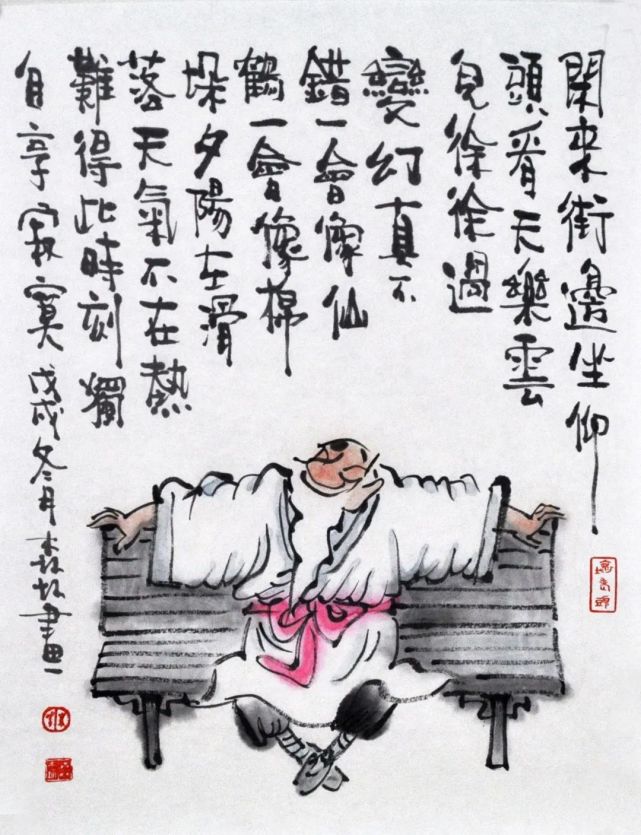 閑來街邊坐仰
頭看天樂雲
兒徐徐過
變幻真不
錯一會像仙
鶴一會像棉
垛夕陽在滑
落天氣不在熱
難得此時刻獨
自享寂寞 戊戌冬月 畫